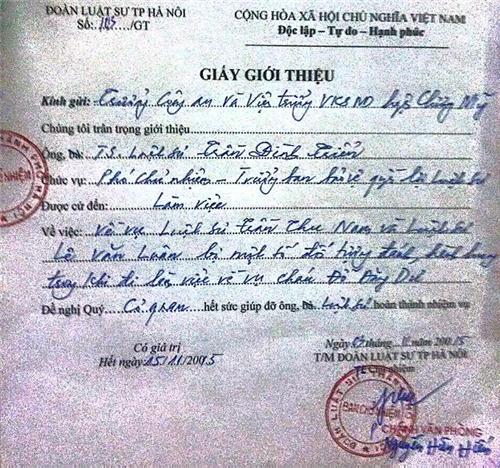 ĐOÀN LUẬT SƯ TP HÀ NỘI
CỘNG HÒA XÃ HỘI CHỦ NGHĨA VIỆT NAM
Số: 105 /GT
Độc lập - Tự do - Hạnh phúc
GIẤY GIỚI THIỆU
Kính gửi: Trưởng Công an và Viện trưởng VKSND huyện Chương Mỹ
Chúng tôi trân trọng giới thiệu
Ông, bà: T.S. Luật sư Trần Đình Triển
Chức vụ: Phó chủ nhiệm - Trưởng ban bảo vệ quyền lợi Luật sư
Được cử đến: Làm việc
Về việc: Về vụ Luật sư Trần Thu Nam và Luật sư
Lê Văn Luân bị một tố đối tượng đánh, hành hung
trong khi đi làm việc về vụ cháu Đỗ Đăng Dư
Đề nghị Quý Cơ quan hết sức giúp đỡ ông, bà Luật sư hoàn thành nhiệm vụ
Có giá trị
Ngày tháng 11 năm 20015
Hết ngày 15/11/20015
T/M ĐOÀN LUẬT SƯ TP HÀ NỘI
Chủ nhiệm
BAN CHỦ NHIỆM
CHÁNH VĂN PHÒNG
Nguyễn